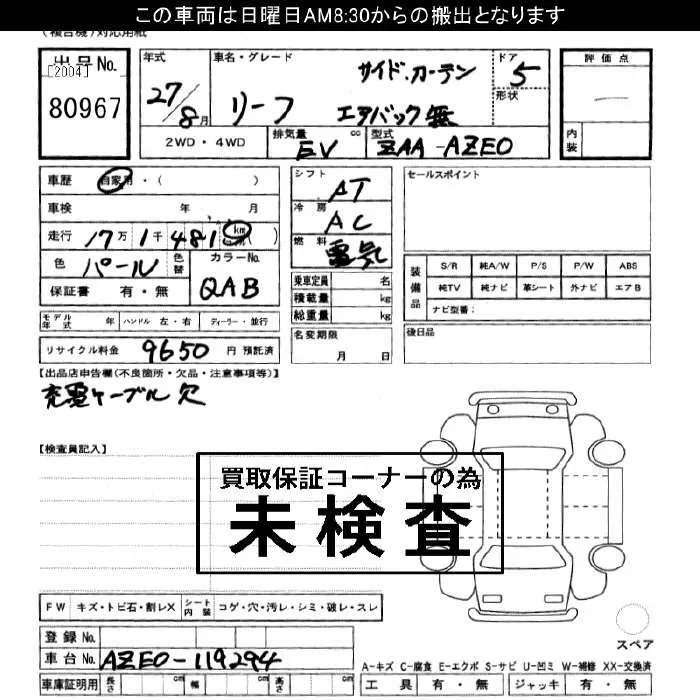 この車両は日曜日AM8:30からの搬出となります
(複合機)対応用紙
出品No. [2004] 80967
年式 27/8月
車名・グレード リーフ サイド.カーテン エアバック無
ドア 5
形状
評価点 —
内装
2WD・4WD
排気量 cc EV
型式 ZAA-AZE0
車歴 自家用・( )
車検 年 月
走行 17万1千481km( )
色 パール 色替
カラーNo. QAB
保証書 有・無
シフト AT
冷房 AC
燃料 電気
乗車定員 名
積載量 kg
総重量 kg
セールスポイント
装備品 S/R 純A/W P/S P/W ABS
純TV 純ナビ 革シート 外ナビ エアB
ナビ型番:
モデル年式 年 ハンドル 左・右 ディーラー・並行
名変期限 月 日
後日品
リサイクル料金 9650 円 預託済
【出品店申告欄(不良箇所・欠品・注意事項等)】
充電ケーブル欠
【検査員記入】
買取保証コーナーの為
未検査
FW キズ・トビ石・割レX シート内装 コゲ・穴・汚レ・シミ・破レ・スレ
登録No.
車台No. AZE0-119294
スペア
A-キズ C-腐食 E-エクボ S-サビ U-凹ミ W-補修 XX-交換済
車庫証明用 長さ cm 幅 cm 高さ cm
工具 有・無 ジャッキ 有・無